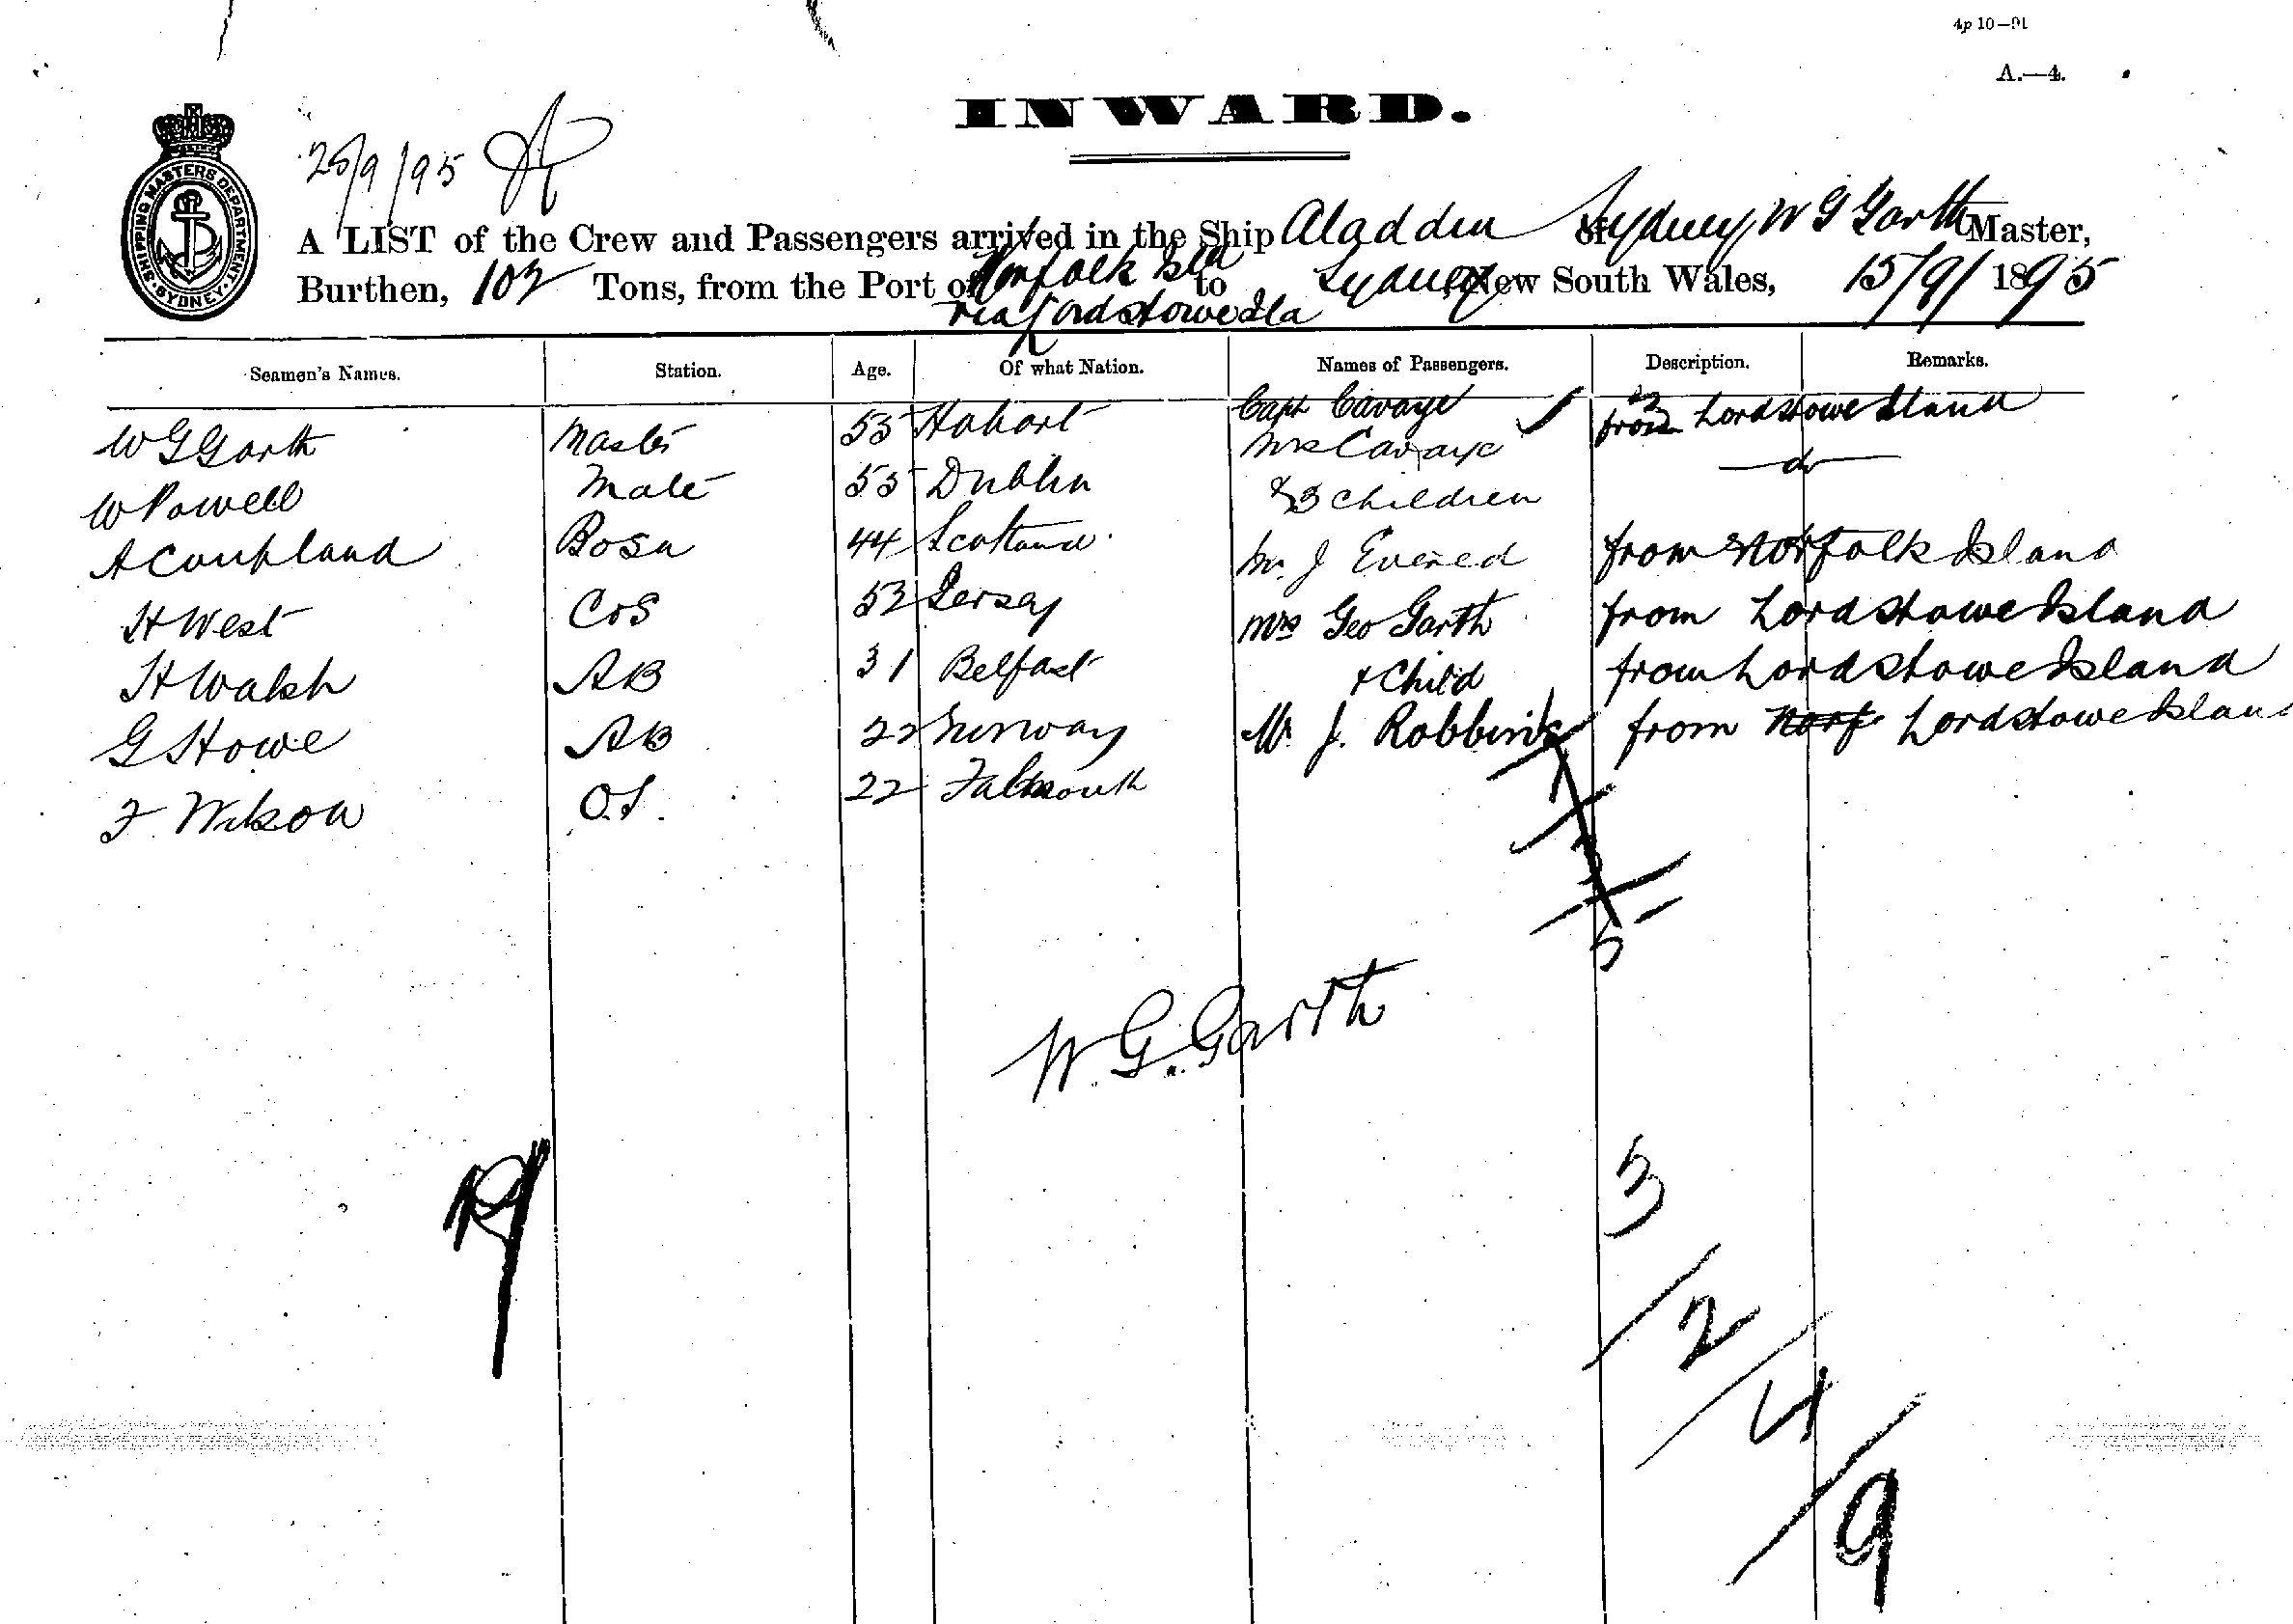 4p 10—91
A.—4.
INWARD.
SHIPPING MASTERS DEPARTMENT · SYDNEY ·
25/9/95
A LIST of the Crew and Passengers arrived in the Ship Aladdin of Sydney, W G Garth Master,
Burthen, 102 Tons, from the Port of Norfolk Isld to Sydney, New South Wales, 15/9/1895
via Lordshowe Ila
Seamen's Names. Station. Age. Of what Nation. Names of Passengers. Description. Remarks.
Capt Cavaye from Lordshowe Island
W G Garth Master 55 Hobart Mrs Cavaye do
W Powell Mate 55 Dublin & 3 children
A Coupland Bosn 44 Scotland Mr. J Evered from Norfolk Island
H West C&S 53 Jersey Mrs Geo Garth from Lordshowe Island
H Walsh AB 31 Belfast + Child from Lordshowe Island
G Howe AB 22 Norway Mr J. Robbins from Norf Lordshowe Islan
F. Wilson O.S. 22 Falmouth
5
W. G. Garth
3
2
4
9